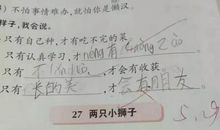 ）不怕事情难办,就怕你是懒汉。
样子,我会说。
只有自己种,才有吃不完的菜
只有认真学习,才néng有
只有 ,才会有收获
只有长的美,才会有朋友。
27 两只小狮子
5.9